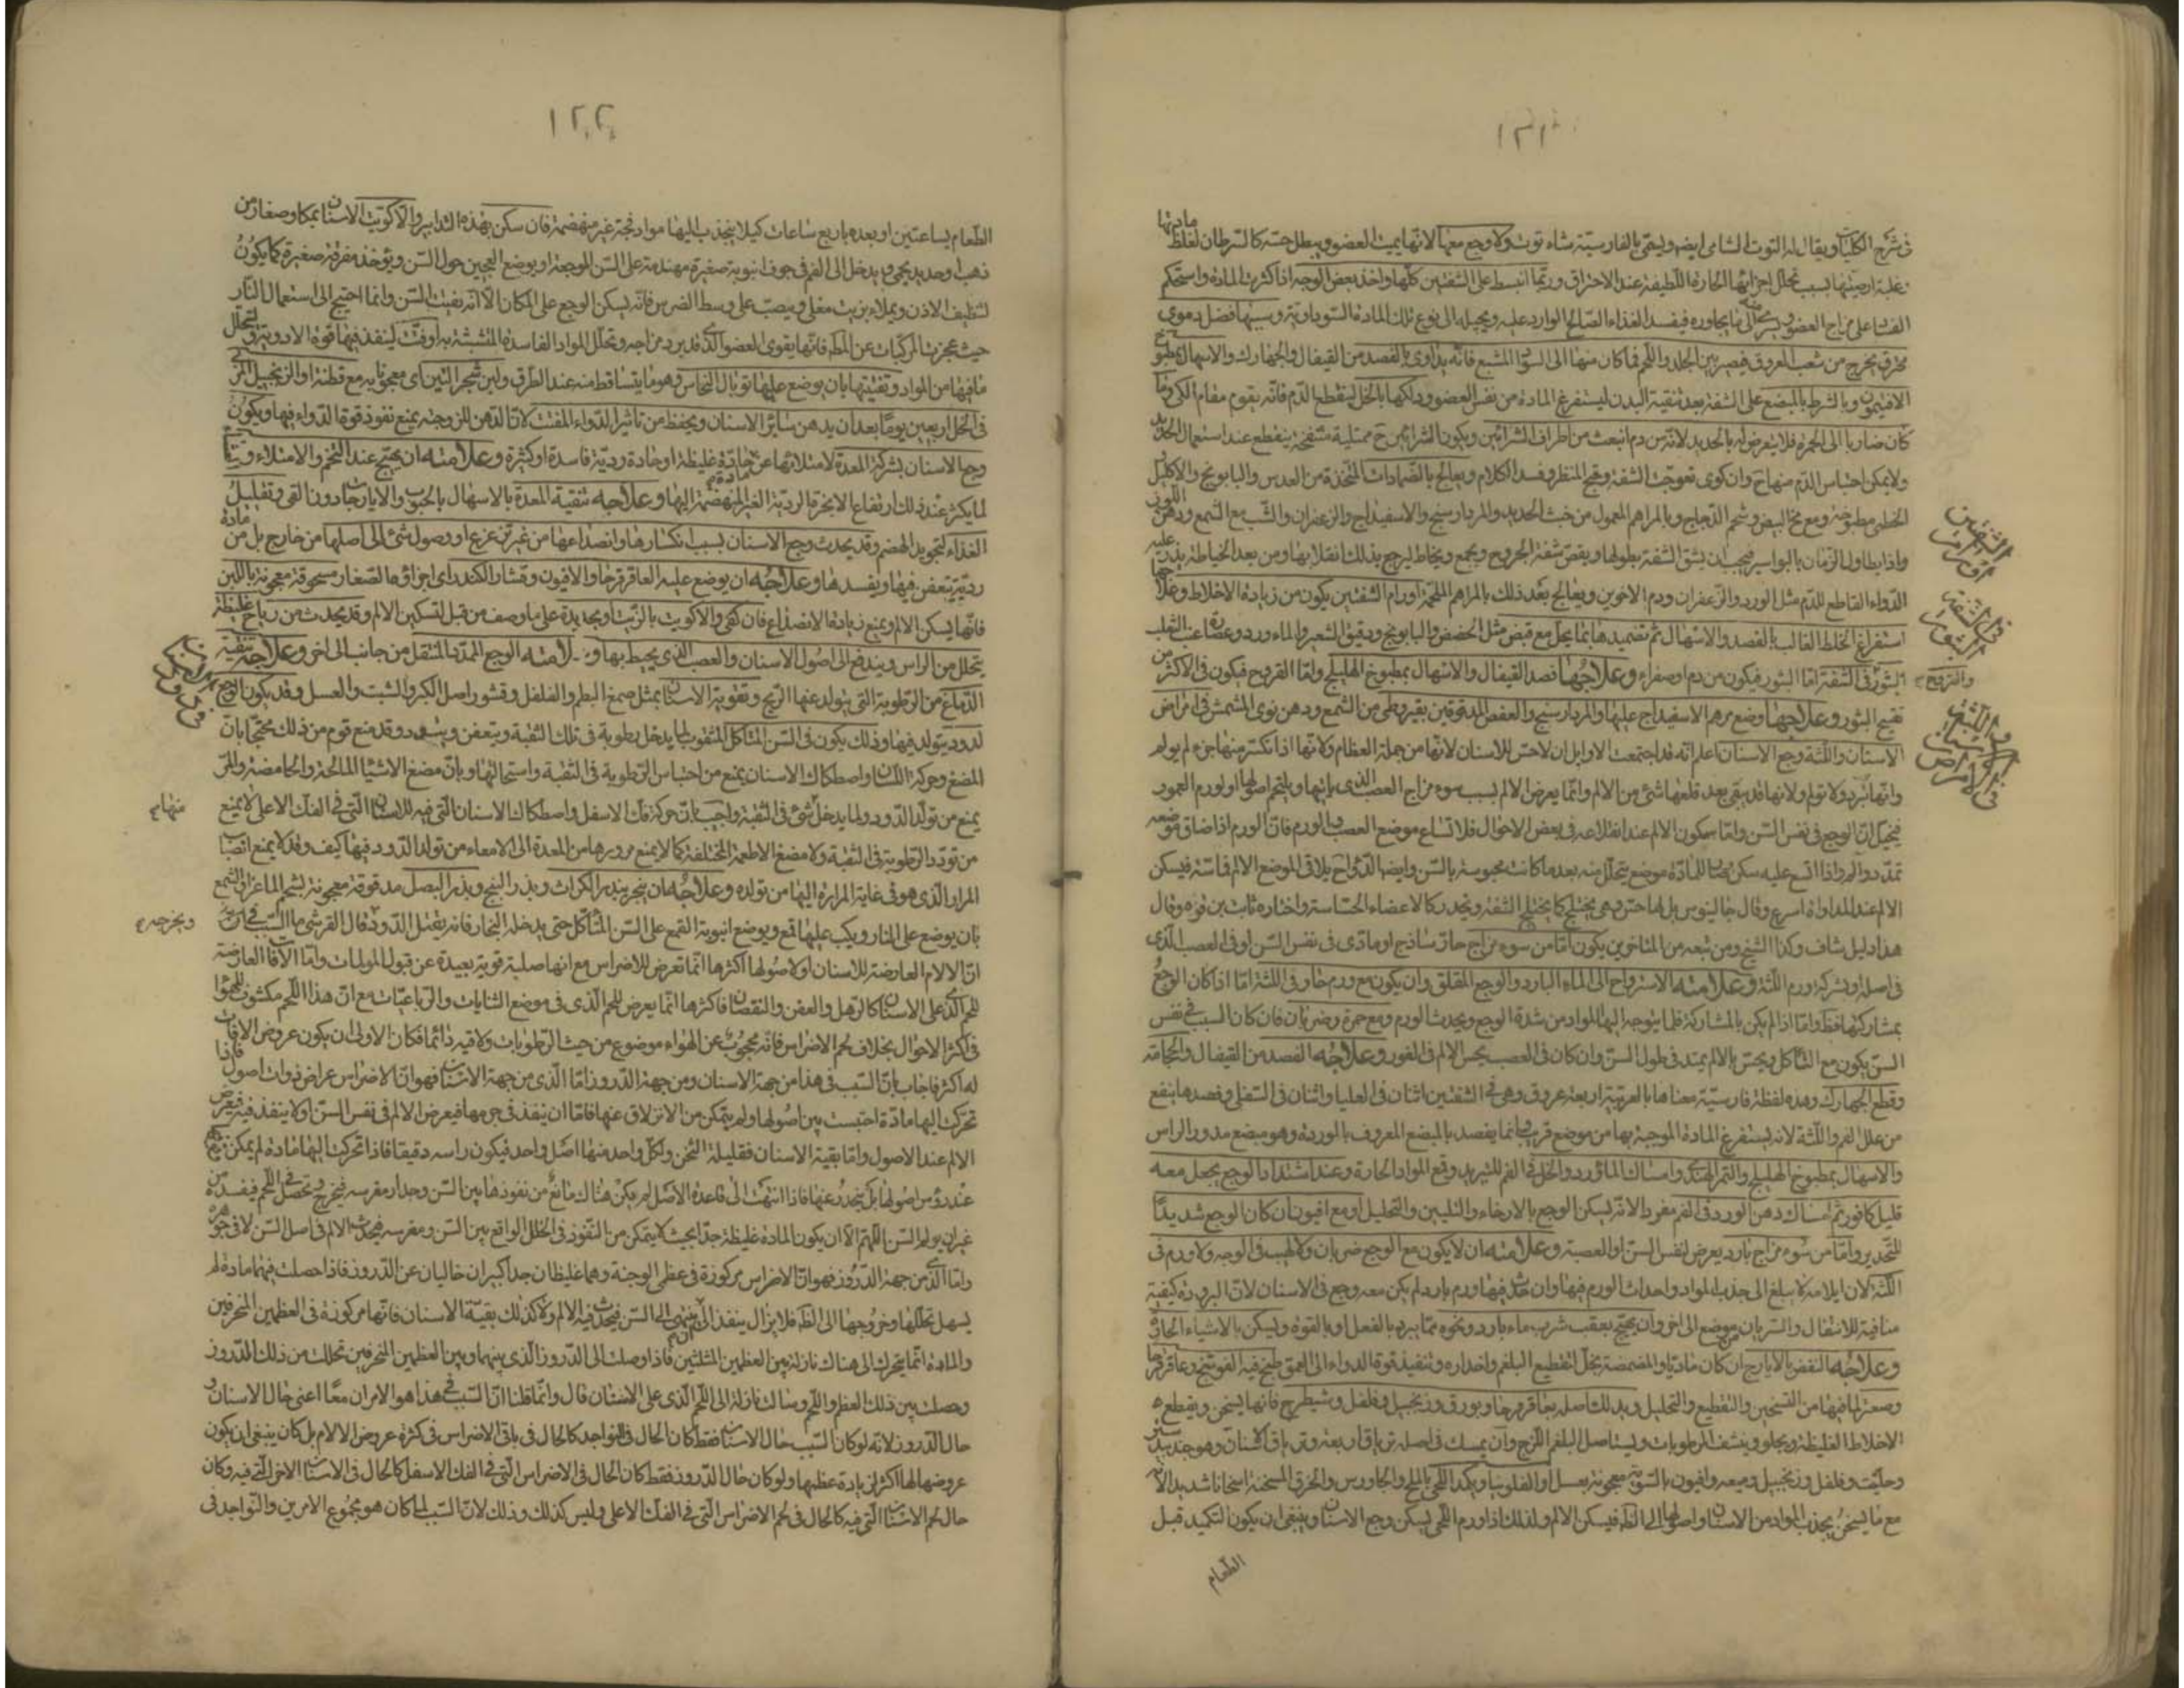 ١٢١
في شرح الكليات ويقال له التوت الشامي ايضا ويسمى بالفارسية شاه توت ولا وجع معها لانها يميت العضو ويبطل حسه كالسرطان لغلظ مادتها
غلبة ارضيتها بسبب تحلل اجزائها الحارة اللطيفة عند الاحتراق وربما انبسط على الشفتين كلها واخذ بعض الوجه اذا كثرت المادة واستحكم
الفساد على مزاج العضو الى ما يجاوره فيفسد الغذاء الصالح الوارد عليه ويحيله الى نوع تلك المادة السوداوية وسببها فضل دموي
محرق يخرج من شعب العروق فيصير بين الجلد واللحم فما كان منها الى المشبع فانه يداوى بالفصد من القيفال والجهارك والاسهال بمطبوخ
الافتيمون وبالشرط بالمبضع على الشفة بعد تنقية البدن ليستفرغ المادة من نفس العضو ودلكها بالخل لينقطع الدم فانه يقوم مقام الكي وما
كان ضاربا الى الحمرة فلا يتعرض له بالحديد لانه من دم انبعث من اطراف الشرائين ويكون الشرائين ح ممتلية منتفخة ينقطع عند استعمال الحديد
ولا يمكن احتباس الدم منها ح وان كوى تعوجت الشفة وقبح المنظر وفسد الكلام ويعالج بالضمادات المتخذة من العدس والبابونج والاكليل
الخطمي مطبوخة ومع مخ البيض وشحم الدجاج وبالمراهم المعمول من خبث الحديد والمردارسنج والاسفيداج والزعفران والشب مع الشمع ودهن اللوز
واذا طاول الزمان بالبواسير فيجب ان يشق الشفة بطولها ويقص شفة الجروح ويجمع ويخاط ليرجع بذلك انقلابها ومن بعد الخياطة يذر عليه
الدواء القاطع للدم مثل الورد والزعفران ودم الاخوين ويعالج بعد ذلك بالمراهم الملحمة اورام الشفتين يكون من زيادة الاخلاط وعلاجها
استفراغ الخلط الغالب بالفصد والاسهال ثم تضميدها بما يحلل مع قبض مثل الحضض والبابونج ودقيق الشعير والماء ورد وعصارة عنب الثعلب
البثور في الشفة اما البثور فيكون من دم او صفراء وعلاجها فصد القيفال والاسهال بمطبوخ الهليلج واما القروح فيكون في الاكثر من
تقيح البثور وعلاجها وضع مرهم الاسفيداج عليها والمردارسنج والعفص المدقوقين بقيروطي من الشمع ودهن نوى المشمش في امراض
الاسنان واللثة وجع الاسنان اعلم انه قد اجتمعت الاوايل ان لا حس للاسنان لانها من جملة العظام ولانها اذا انكسر منها جزء لم يولم
وانها تبرد ولا تولم ولانها قد يبقى بعد قلعها شئ من الالم وانما يعرض الالم بسبب سوء مزاج العصب الذي ياتيها ويلتحم اصولها او لورم العمور
فيخيل ان الوجع في نفس السن واما سكون الالم عند انقلاعه في بعض الاحوال فلاتساع موضع العصب الورم فان الورم اذا ضاق موضعه
تمدد والم واذا اتسع عليه سكن للمادة موضع يتحلل منه بعد ما كانت محبوسة بالسن وايضا الدواء ح يلاقي الموضع الالم فاسنه فيسكن
الالم عند المداواة اسرع وقال جالينوس بل لها حس وهي يختلج كما يختلج الشفة ويخدر كالاعضاء الحساسة واختاره ثابت بن قره وقال
هذا دليل شاف وكذا الشيخ ومن تبعه من المتاخرين يكون اما من سوء مزاج حار ساذج او مادى في نفس السن او في العصب الذي
في اصله وبشركة ورم اللثة وعلامته الاسترواح الى الماء البارد والوجع المقلق وان يكون مع ورم حار في اللثة اما اذا كان الوجع
بمشاركتها فظ واما اذا لم يكن بالمشاركة فلما يتوجه اليها المواد من شدة الوجع ويحدث الورم ومع حمرة وضربان فان كان السبب في نفس
السن يكون مع التاكل ويحس بالالم يمتد في طول السن وان كان في العصب يحس الالم في الغور وعلاجه الفصد من القيفال والحجامة
وقطع الجهارك وهذه لفظة فارسية معناها بالعربية اربعة عروق وهي تحت الشفتين اثنان في العليا واثنان في السفلى وفصدها ينفع
من علل الفم واللثة لانه يستفرغ المادة الموجبة بها من موضع قريب وانما يفصد بالمبضع المعروف بالوردة وهو مبضع مدور الراس
والاسهال بمطبوخ الهليلج والتمر الهندي وامساك الماورد والخل في الفم للتبريد وقمع المواد الحارة وعند اشتداد الوجع يجعل معه
قليل كافور ثم امساك دهن الورد في الفم مفردا لانه ليسكن الوجع بالارخاء والتليين والتحليل او مع افيون ان كان الوجع شديدا
للتخدير واما من سوء مزاج بارد يعرض لنفس السن او العصبة وعلامته ان لا يكون مع الوجع ضربان ولا لهيب في الوجه ولا ورم في
اللثة لان ايلامه لا يبلغ الى جذب المواد واحداث الورم فيها وان حدث فيها ورم بارد لم يكن معه وجع في الاسنان لان البرودة كيفية
منافية للانتقال والسريان من موضع الى اخر وان يهيج بعقب شرب ماء بارد ونحوه مما يبرد بالفعل او بالقوة ويسكن بالاشياء الحارة
وعلاجه النفض بالايارج ان كان ماديا والمضمضة بخل لتقطيع البلغم واخداره وتنفيذ قوة الدواء الى العمق طبخ فيه الفوتنج وعاقرقرحا
وصعتر لما فيها من التسخين والتقطيع والتحليل ويدلك اصله بعاقرقرحا وبورق وزنجبيل وفلفل وشيطرج فانها يسخن ويقطع
الاخلاط الغليظة ويجلو وينشف الرطوبات ويستاصل البلغم اللزج وان يمسك في اصله ترياق اربعة وترياق الاسنان وهو جند بيدستر
وحلتيت وفلفل وزنجبيل وميعه وافيون بالسوية معجونة بعسل او الفلونيا ويكمد اللحى بالملح والجاورس والخرق المسخنة اسخانا شديدا لانه
مع ما يسخن يجذب المواد من الاسنان واصولها الى الظ فيسكن الالم ولذلك اذا ورم اللحى يسكن وجع الاسنان وينبغي ان يكون التكميد قبل
الطعام
والقروح
١٢٢
الطعام بساعتين او بعده باربع ساعات كيلا ينجذب اليها مواد فجة غير منهضمة فان سكن بهذه التدابير والا كويت الاسنان بمكاو صغار من
ذهب او حديد يحمى ويدخل الى الفم في جوف انبوبة صغيرة مهندمة على السن الموجعة او يوضع العجين حول السن ويؤخذ مغرفة صغيرة كما يكون
لتنظيف الاذن ويملاء بزيت مغلي ويصب على وسط الضرس فانه يسكن الوجع على المكان الا انه يفتت السن وانما احتيج الى استعمال النار
حيث عجزت المركبات عن الملم فانها يقوى العضو الذي قد برد مزاجه وتحلل المواد الفاسدة المتشبثة به او فتت لينفذ فيها قوة الادوية ويتحلل
ما فيها من المواد وتفتيتها بان يوضع عليها توبال النحاس وهو ما يتساقط منه عند الطرق ولبن شجر التين اي معجونا به مع قطنة او الزنجبيل المربى
في الخل اربعين يوما بعد ان يدهن سائر الاسنان ويحفظ من تاثير الدواء المفتت لان الدهن للزوجته يمنع نفوذ قوة الدواء فيها ويكون
وجع الاسنان بشركة المعدة لامتلائها عن مادة غليظة او حادة ردية فاسدة او كثيرة وعلامته ان يهيج عند التخم والامتلاء
لما يكثر عند ذلك ارتفاع الابخرة الردية الغير المنهضمة اليها وعلاجه تنقية المعدة بالاسهال بالحبوب والايارجات دون القي وتقليل
الغذاء لتجويد الهضم وقد يحدث وجع الاسنان بسبب انكسارها وانصداعها من غير تزعزع او وصول شئ الى اصلها من خارج بل من مادة
ردية يتعفن فيها ويفسدها وعلاجه ان يوضع عليه العاقرقرحا والافيون وقشار الكندر اي اجزاؤها الصغار مسحوقة معجونة باللبن
فانها يسكن الالم ويمنع زيادة الانصداع فان كفى والا كويت بالزيت او بحديدة على ما وصف من قبل لتسكين الالم وقد يحدث من رياح غليظة
يتحلل من الراس ويندفع الى اصول الاسنان والعصب الذي يحيط بها وعلامته الوجع الممدد المنتقل من جانب الى اخر وعلاجه تنقية
الدماغ من الرطوبة التي يتولد عنها الريح وتقوية الاسنان بمثل صمغ البطم والفلفل وقشور اصل الكبر والشبت والعسل وقد يكون الوجع
لدود يتولد فيها وذلك يكون في السن المتاكل المثقوب لما يدخل رطوبة في تلك الثقبة ويتعفن وقد منع قوم من ذلك محتجا بان
المضغ وحركة اللسان واصطكاك الاسنان يمنع من احتباس الرطوبة في الثقبة واستحالتها وبان مضغ الاشياء المالحة والحامضة والمر
يمنع من تولد الدود ولما يدخل شئ في الثقبة واجيب بان حركة فك الاسفل واصطكاك الاسنان التي فيه للاسنان التي في الفك الاعلى لا يمنع
من تردد الرطوبة في الثقبة ولا مضغ الاطعمة المختلفة كما لا يمنع مرورها من المعدة الى الامعاء من تولد الدود فيها كيف وقد لا يمنع انصباب
المرار الذي هو في غاية المرارة اليها من تولده وعلاجه ان يبخر ببذر الكراث وبذر البنج وبذر البصل مدقوقة معجونة بشحم الماعز او الشمع
بان يوضع على النار ويكب عليها قمع ويوضع انبوبة القمع على السن المتاكل حتى يدخله البخار فانه يقتل الدود قال القرشي ما السبب في
ان الالام العارضة للاسنان ولاصولها اكثرها انما تعرض للاضراس مع انها صلبة قوية بعيدة عن قبول المولمات واما الافات العارضة
للحم الذي على الاسنان كالترهل والعفن والنقصان فاكثرها انما يعرض للحم الذي في موضع الثنايات والرباعيات مع ان هذا اللحم مكشوف للهواء
في اكثر الاحوال بخلاف لحم الاضراس فانه محجوب عن الهواء موضوع من حيث الرطوبات ولاقيه دائما فكان الاولى ان يكون عروض الافات
له اكثر فاجاب بان السبب في هذا من جهة الاسنان ومن جهة الدروز اما الذي من جهة الاسنان فهو ان الاضراس عراض ذوات اصول فاذا
تحركت اليها مادة احتبست بين اصولها ولم يتمكن من الانزلاق عنها فاما ان ينفذ في جرمها فيعرض الالم في نفس السن او لا ينفذ فيه فيعرض
الالم عند الاصول واما بقية الاسنان فقليلة الثخن ولكل واحد منها اصل واحد فيكون راسه دقيقا فاذا تحركت اليها مادة لم يمكن
عند رؤس اصولها بل ينحدر عنها فاذا انتهت الى قاعدة الاصل لم يكن هناك مانع من نفوذها بين السن وجدار مغرسه فيخرج وتحصل في اللحم فيفسده من
غير ان يولم السن اللهم الا ان يكون المادة غليظة جدا بحيث لا يتمكن من النفوذ في الخلل الواقع بين السن ومغرسه فيحدث الالم في اصل السن لا في جوهره
واما الذي من جهة الدروز فهو ان الاضراس مركوزة في عظمي الوجنة وهما غليظان جدا كبيران خاليان عن الدروز فاذا حصلت فيهما مادة لم
يسهل تحللها وخروجها الى الظ فلا يزال ينفذ الى ان ينتهي الى السن فيحدث فيه الالم ولا كذلك بقية الاسنان فانها مركوزة في العظمين المنحرفين
والمادة انما يتحرك الى هناك نازلة بين العظمين المثلثين فاذا وصلت الى الدروز الذي بينهما وبين العظمين المنحرفين تحللت من ذلك الدروز
وحصلت بين ذلك العظم واللحم وسالت نازلة الى اللحم الذي على الاسنان قال وانما قلنا ان السبب في هذا هو الامران معا اعني حال الاسنان و
حال الدروز لانه لو كان السبب حال الاسنان فقط كان الحال في النواجد كالحال في باقي الاضراس في كثرة عروض الالام بل كان ينبغي ان يكون
عروضها لها اكثر لزيادة عظمها ولو كان حال الدروز فقط كان الحال في الاضراس التي في الفك الاسفل كالحال في الاسنان الاخر التي فيه وكان
حال لحم الاسنان التي فيه كالحال في لحم الاضراس التي في الفك الاعلى وليس كذلك وذلك لان السبب لما كان هو مجموع الامرين والنواجد في
منها
ويخرجه